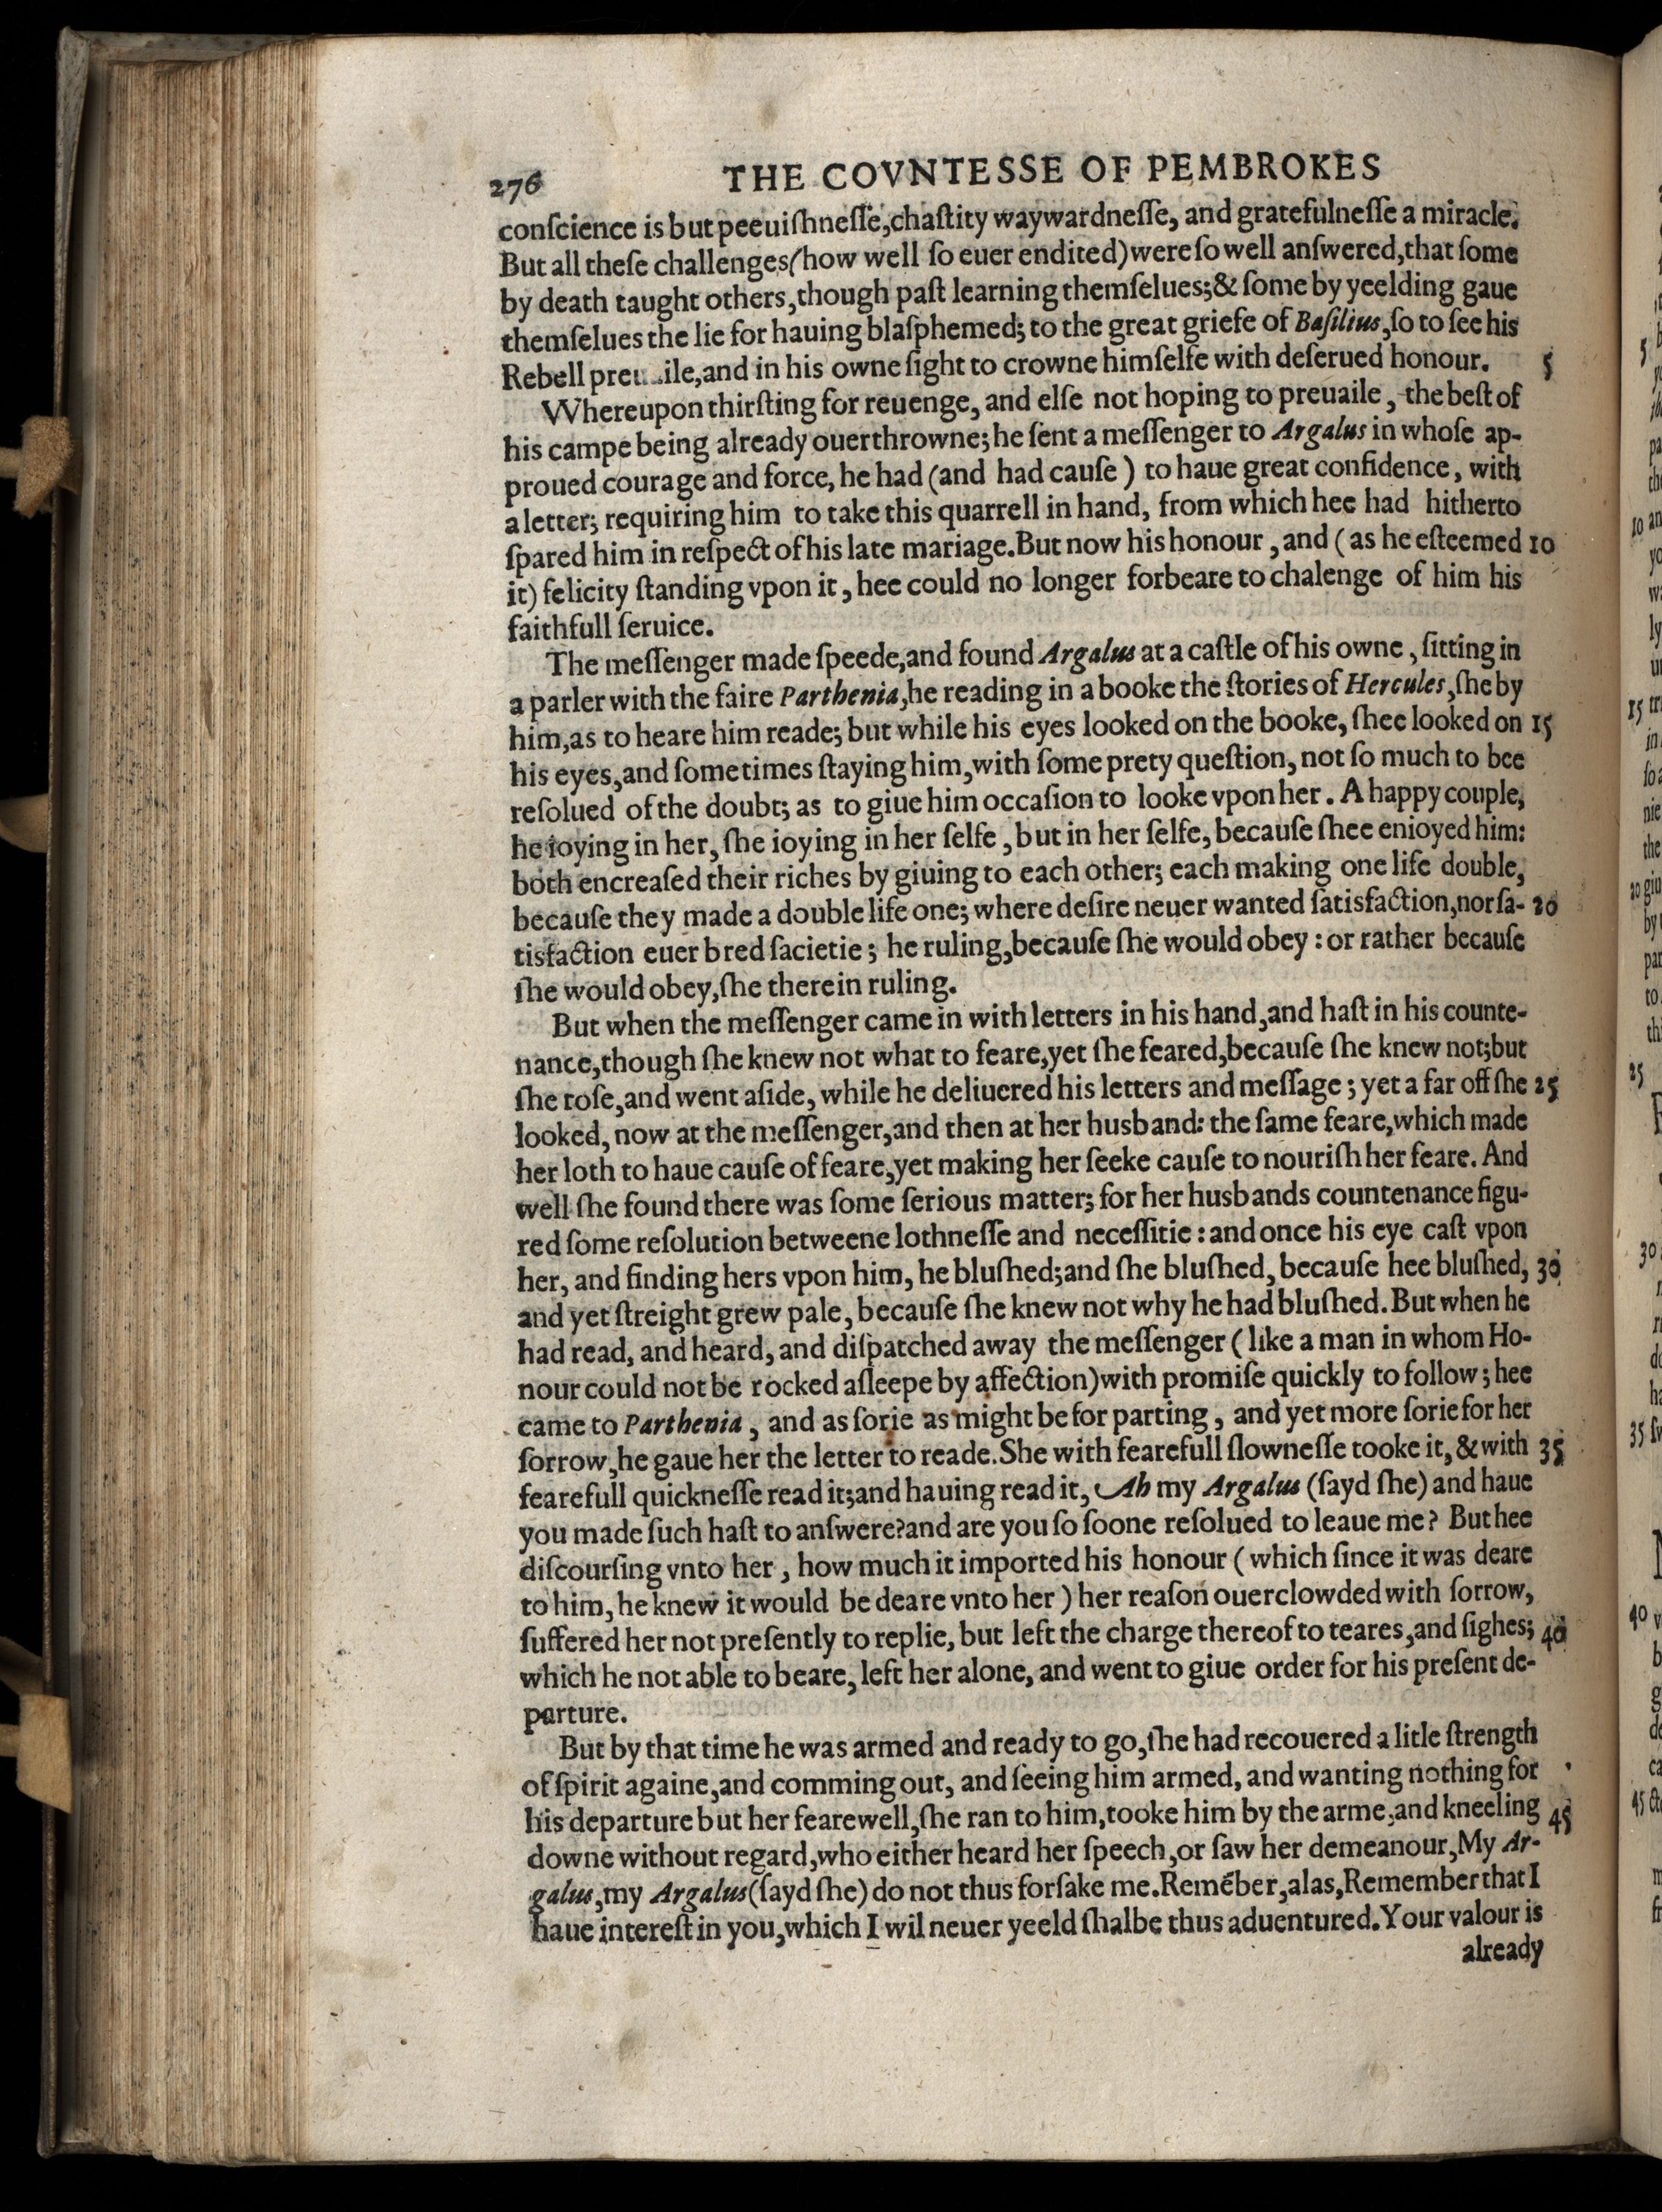 276 THE COVNTESSE OF PEMBROKES
conſcience is but peeuiſhneſſe,chaſtity waywardneſſe, and gratefulneſſe a miracle.
But all theſe challenges(how well ſo euer endited)were ſo well anſwered,that ſome
by death taught others,though paſt learning themſelues;& ſome by yeelding gaue
themſelues the lie for hauing blaſphemed; to the great griefe of Baſilius,ſo to ſee his
Rebell preuaile,and in his owne ſight to crowne himſelfe with deſerued honour. 5
Whereupon thirſting for reuenge, and elſe not hoping to preuaile, the beſt of
his campe being already ouerthrowne; he ſent a meſſenger to Argalus in whoſe ap-
proued courage and force, he had (and had cauſe ) to haue great confidence, with
a letter; requiring him to take this quarrell in hand, from which hee had hitherto
ſpared him in reſpect of his late mariage.But now his honour , and ( as he eſteemed 10
it) felicity ſtanding vpon it , hee could no longer forbeare to chalenge of him his
faithfull ſeruice.
The meſſenger made ſpeede,and found Argalus at a caſtle of his owne , ſitting in
a parler with the faire Parthenia,he reading in a booke the ſtories of Hercules,ſhe by
him,as to heare him reade; but while his eyes looked on the booke, ſhee looked on 15
his eyes,and ſometimes ſtaying him,with ſome prety queſtion, not ſo much to bee
reſolued of the doubt; as to giue him occaſion to looke vpon her . A happy couple,
he ioying in her, ſhe ioying in her ſelfe , but in her ſelfe, becauſe ſhee enioyed him:
both encreaſed their riches by giuing to each other; each making one life double,
becauſe they made a double life one; where deſire neuer wanted ſatisfaction,nor ſa- 20
tisfaction euer bred ſacietie ; he ruling,becauſe ſhe would obey : or rather becauſe
ſhe would obey,ſhe therein ruling.
But when the meſſenger came in with letters in his hand,and haſt in his counte-
nance,though ſhe knew not what to feare,yet ſhe feared,becauſe ſhe knew not;but
ſhe roſe,and went aſide, while he deliuered his letters and meſſage ; yet a far off ſhe 25
looked, now at the meſſenger,and then at her husband: the ſame feare,which made
her loth to haue cauſe of feare,yet making her ſeeke cauſe to nouriſh her feare. And
well ſhe found there was ſome ſerious matter; for her husbands countenance figu-
red ſome reſolution betweene lothneſſe and neceſſitie : and once his eye caſt vpon
her, and finding hers vpon him, he bluſhed;and ſhe bluſhed, becauſe hee bluſhed, 30
and yet ſtreight grew pale, becauſe ſhe knew not why he had bluſhed. But when he
had read, and heard, and diſpatched away the meſſenger ( like a man in whom Ho-
nour could not be rocked aſleepe by affection)with promiſe quickly to follow ; hee
came to Parthenia , and as ſorie as might be for parting , and yet more ſorie for her
ſorrow,he gaue her the letter to reade.She with fearefull ſlowneſſe tooke it, & with 35
fearefull quickneſſe read it;and hauing read it, Ah my Argalus (ſayd ſhe) and haue
you made ſuch haſt to anſwere?and are you ſo ſoone reſolued to leaue me? But hee
diſcourſing vnto her , how much it imported his honour ( which ſince it was deare
to him, he knew it would be deare vnto her ) her reaſon ouerclowded with ſorrow,
ſuffered her not preſently to replie, but left the charge thereof to teares,and ſighes; 40
which he not able to beare, left her alone, and went to giue order for his preſent de-
parture.
But by that time he was armed and ready to go,ſhe had recouered a litle ſtrength
of ſpirit againe,and comming out, and ſeeing him armed, and wanting nothing for
his departure but her fearewell,ſhe ran to him,tooke him by the arme,and kneeling 45
downe without regard,who either heard her ſpeech,or ſaw her demeanour,My Ar-
galus,my Argalus(ſayd ſhe) do not thus forſake me.Remēber,alas,Remember that I
haue intereſt in you,which I wil neuer yeeld ſhalbe thus aduentured.Your valour is
already